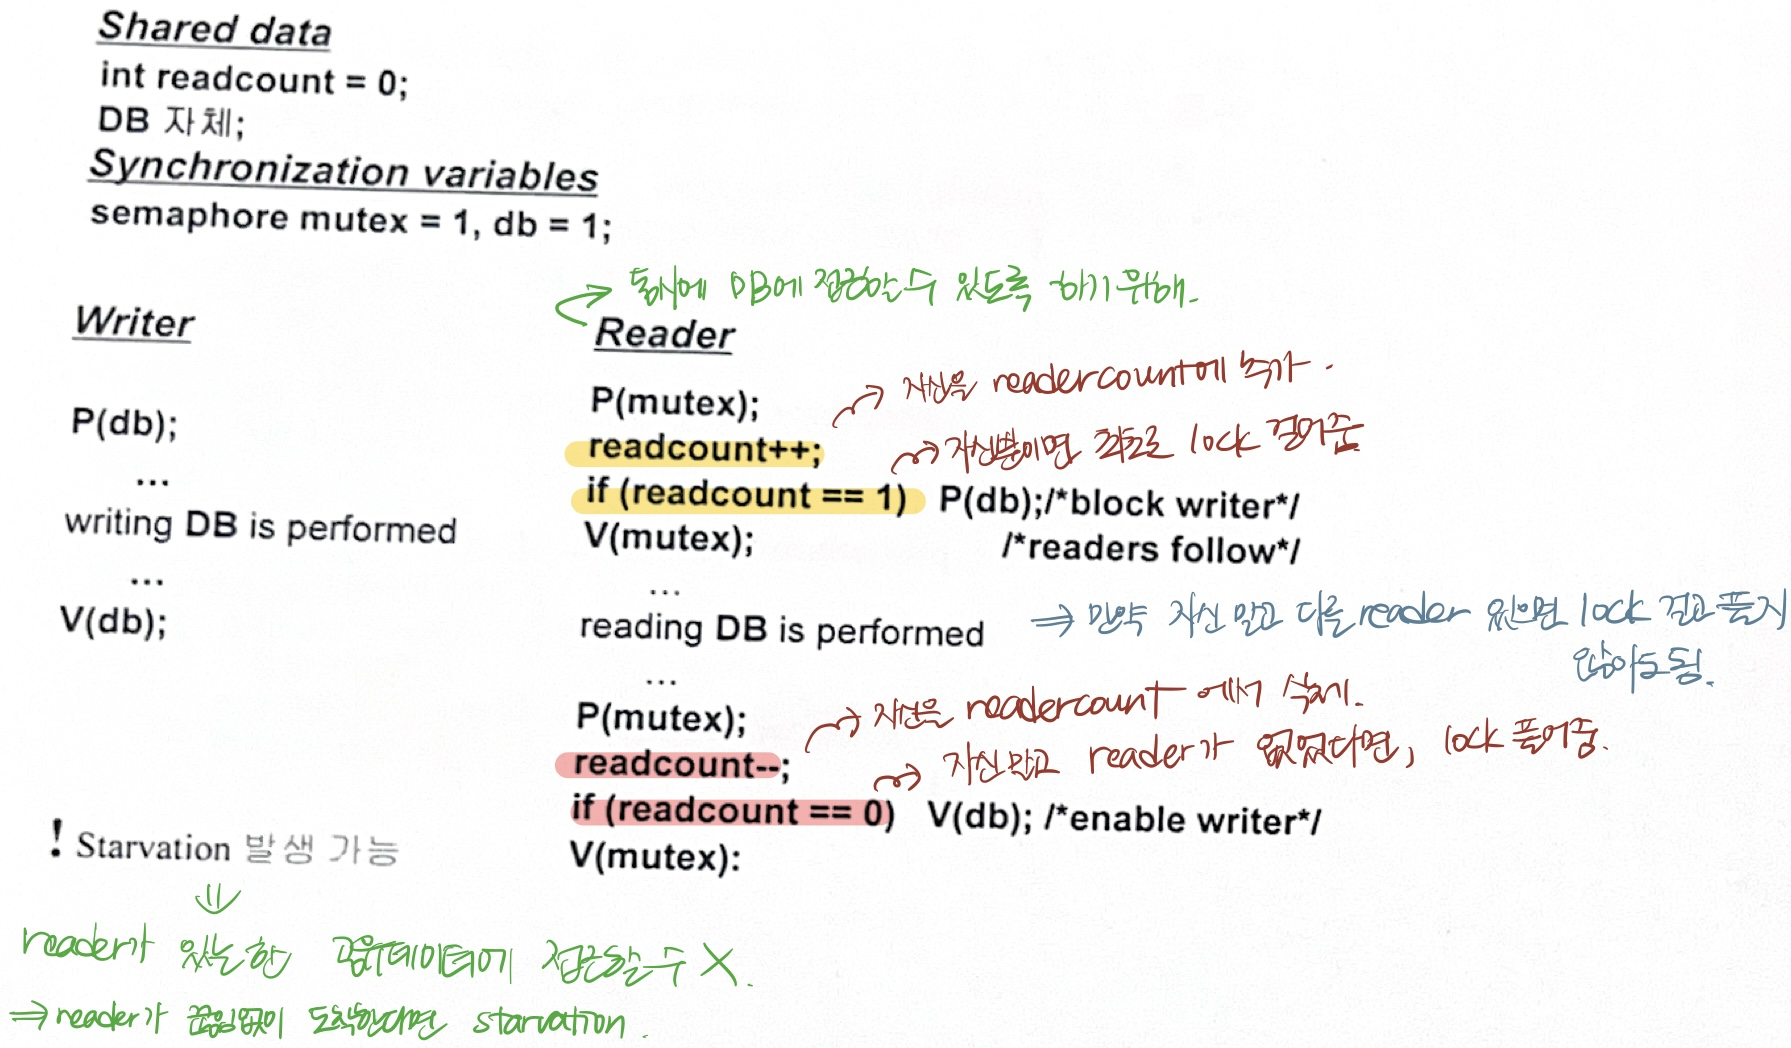 Shared data
int readcount = 0;
DB 자체;
Synchronization variables
semaphore mutex = 1, db = 1;
동시에 DB에 접근할 수 있도록 하기 위해.
Writer
P(db);
...
writing DB is performed
...
V(db);
Reader
P(mutex);
→ 자신을 readercount에 추가.
readcount++;
→ 자신뿐이면 최초로 lock 걸어줌
if (readcount == 1) P(db);/*block writer*/
V(mutex); /*readers follow*/
...
reading DB is performed
⇒ 만약 자신 말고 다른 reader 있으면 lock 걸고 풀지
않아도 됨.
...
P(mutex);
→ 자신을 readercount 에서 삭제.
readcount--;
→ 자신 말고 reader가 없었다면, lock 풀어줌.
if (readcount == 0) V(db); /*enable writer*/
V(mutex):
! Starvation 발생 가능
⇓
reader가 있는 한 공유데이터에 접근할 수 X.
⇒ reader가 끊임없이 도착한다면 starvation.